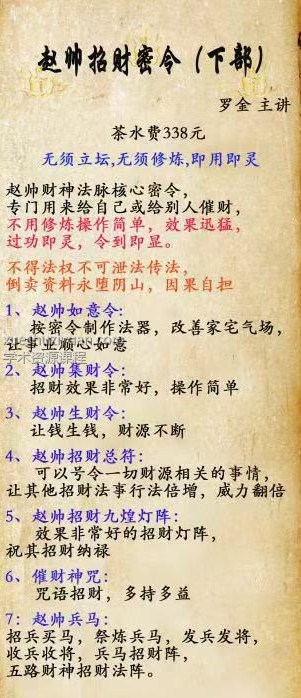 赵帅招财密令（下部）
罗金 主讲
茶水费338元
无须立坛,无须修炼,即用即灵
赵帅财神法脉核心密令，
专门用来给自己或给别人催财，
不用修炼操作简单，效果迅猛，
过功即灵，令到即显。
不得法权不可泄法传法，
倒卖资料永堕阴山，因果自担
1、赵帅如意令：
按密令制作法器，改善家宅气场，
让事业顺心如意
学术资源课程
2、赵帅集财令：
招财效果非常好，操作简单
3、赵帅生财令：
让钱生钱，财源不断
4、赵帅招财总符：
可以号令一切财源相关的事情，
让其他招财法事行法倍增，威力翻倍
5、赵帅招财九煌灯阵：
效果非常好的招财灯阵，
祝其招财纳禄
6、催财神咒：
咒语招财，多持多益
7：赵帅兵马：
招兵买马，祭炼兵马，发兵发将，
收兵收将，兵马招财阵，
五路财神招财法阵。